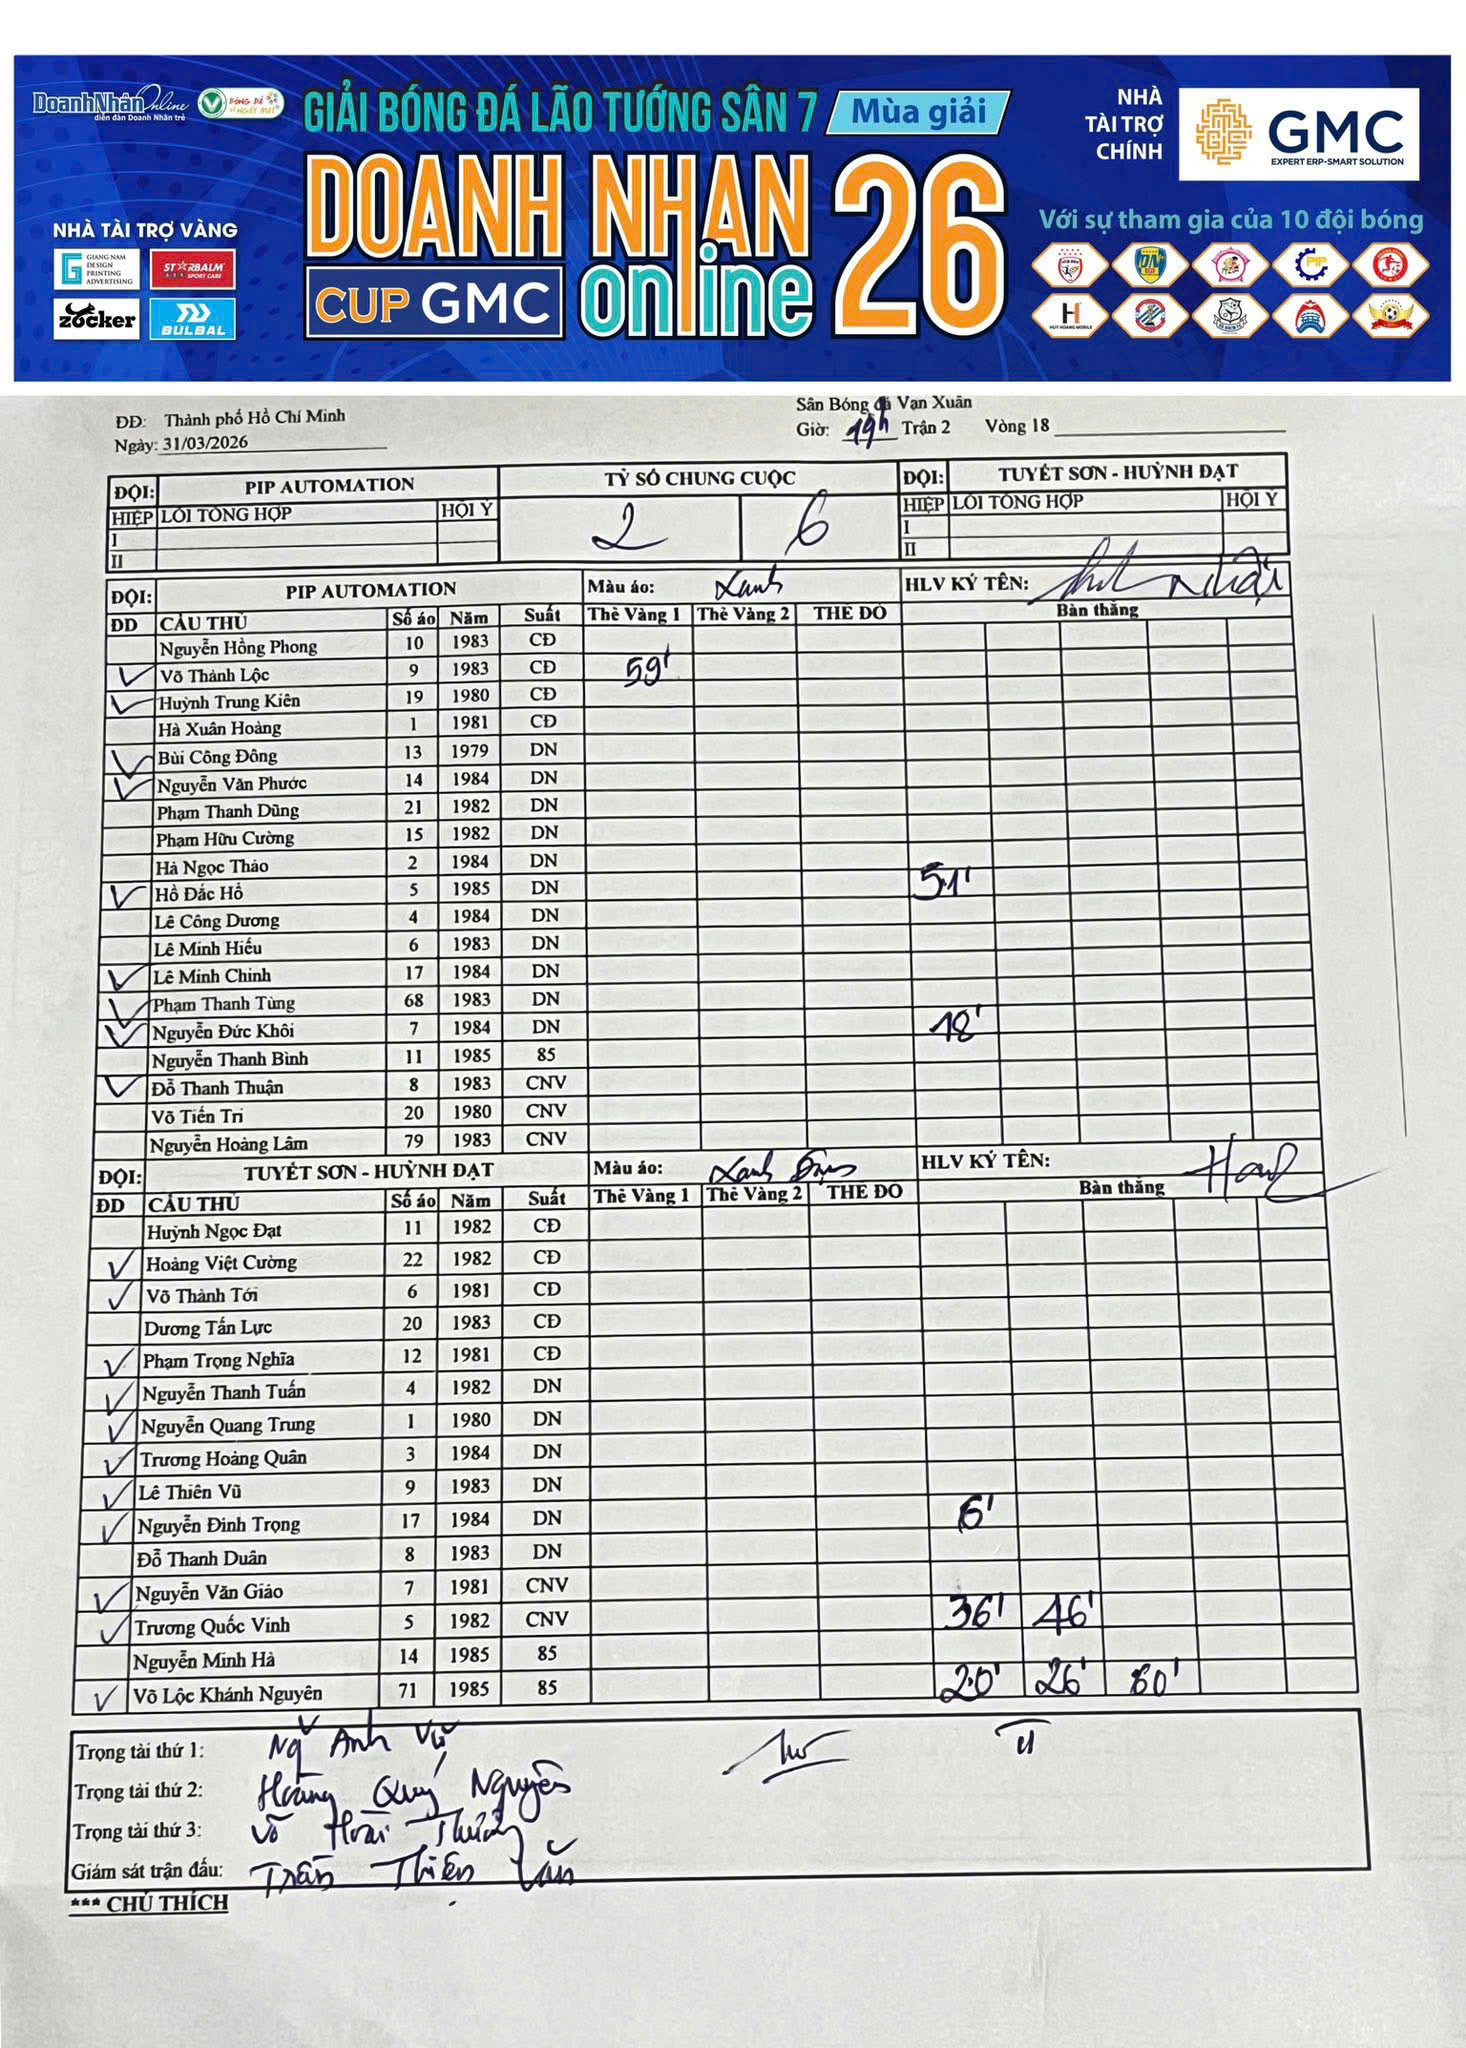 DoanhNhânOnline
diễn đàn Doanh Nhân trẻ
BÓNG ĐÁ
VÌ NGÀY MAI
GIẢI BÓNG ĐÁ LÃO TƯỚNG SÂN 7 Mùa giải
DOANH NHAN 26
online
CUP GMC
NHÀ TÀI TRỢ CHÍNH
GMC
EXPERT ERP-SMART SOLUTION
NHÀ TÀI TRỢ VÀNG
GIANG NAM
DESIGN
PRINTING
ADVERTISING
STARBALM
SPORT CARE
zocker
BULBAL
Với sự tham gia của 10 đội bóng
PIP
HUY HOANG MOBILE
ĐĐ: Thành phố Hồ Chí Minh Sân Bóng đá Vạn Xuân
Ngày: 31/03/2026 Giờ: 19h Trận 2 Vòng 18
ĐỘI: PIP AUTOMATION TỶ SỐ CHUNG CUỘC ĐỘI: TUYẾT SƠN - HUỲNH ĐẠT
HIỆP LỖI TỔNG HỢP HỘI Ý 2 6 HIỆP LỖI TỔNG HỢP HỘI Ý
I I
II II
ĐỘI: PIP AUTOMATION Màu áo: Xanh HLV KÝ TÊN: Nhật
ĐD CẦU THỦ Số áo Năm Suất Thẻ Vàng 1 Thẻ Vàng 2 THẺ ĐỎ Bàn thắng
Nguyễn Hồng Phong 10 1983 CĐ
Võ Thành Lộc 9 1983 CĐ 59'
Huỳnh Trung Kiên 19 1980 CĐ
Hà Xuân Hoàng 1 1981 CĐ
Bùi Công Đông 13 1979 DN
Nguyễn Văn Phước 14 1984 DN
Phạm Thanh Dũng 21 1982 DN
Phạm Hữu Cường 15 1982 DN
Hà Ngọc Thảo 2 1984 DN
Hồ Đắc Hổ 5 1985 DN 51'
Lê Công Dương 4 1984 DN
Lê Minh Hiếu 6 1983 DN
Lê Minh Chinh 17 1984 DN
Phạm Thanh Tùng 68 1983 DN
Nguyễn Đức Khôi 7 1984 DN 18'
Nguyễn Thanh Bình 11 1985 85
Đỗ Thanh Thuận 8 1983 CNV
Võ Tiến Tri 20 1980 CNV
Nguyễn Hoàng Lâm 79 1983 CNV
ĐỘI: TUYẾT SƠN - HUỲNH ĐẠT Màu áo: Xanh HLV KÝ TÊN:
ĐD CẦU THỦ Số áo Năm Suất Thẻ Vàng 1 Thẻ Vàng 2 THẺ ĐỎ Bàn thắng
Huỳnh Ngọc Đạt 11 1982 CĐ
Hoàng Việt Cường 22 1982 CĐ
Võ Thành Tới 6 1981 CĐ
Dương Tấn Lực 20 1983 CĐ
Phạm Trọng Nghĩa 12 1981 CĐ
Nguyễn Thanh Tuấn 4 1982 DN
Nguyễn Quang Trung 1 1980 DN
Trương Hoàng Quân 3 1984 DN
Lê Thiên Vũ 9 1983 DN
Nguyễn Đình Trọng 17 1984 DN 6'
Đỗ Thanh Duân 8 1983 DN
Nguyễn Văn Giảo 7 1981 CNV
Trương Quốc Vinh 5 1982 CNV 36' 46'
Nguyễn Minh Hà 14 1985 85
Võ Lộc Khánh Nguyên 71 1985 85 20' 26' 60'
Trọng tài thứ 1: Ng Anh Vũ II
Trọng tài thứ 2: Hoàng Quý Nguyên
Trọng tài thứ 3: Võ Hoài
Giám sát trận đấu: Trần Thiên Văn
*** CHÚ THÍCH